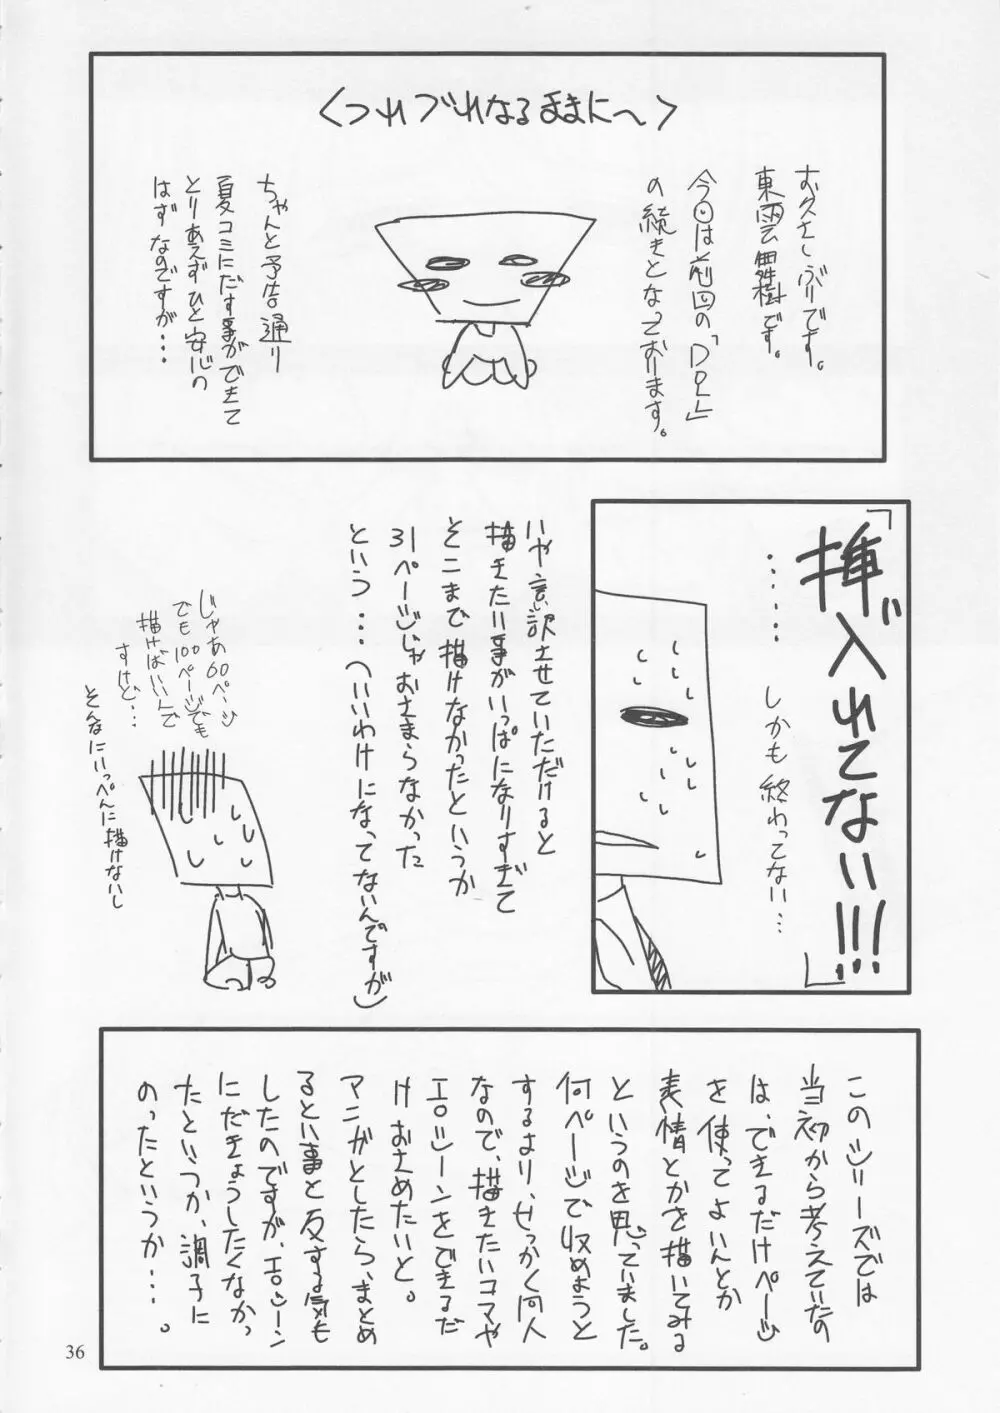 〈つれづれなるままに〜〉
お久しぶりです。
東雲舞樹です。
今回は前回の「DOL」
の続きとなっております。
ちゃんと予告通り
夏コミにだす事ができて
とりあえずひと安心の
はずなのですが・・・
「挿入れてない!!!」
・・・・・・しかも終わってない・・・
いや言い訳させていただけると
描きたい事がいっぱになりすぎて
そこまで描けなかったというか
31ページじゃおさまらなかった
という・・・(いいわけになってないんですが)
じゃあ60ページ
でも100ページでも
描けばいいんで
すけど・・・
そんなにいっぺんに描けないし
このシリーズでは
当初から考えていたの
は、できるだけページ
を使ってよいんとか
表情とかを描いてみる
というのを思っていました。
何ページで収めようと
するより、せっかく同人
なので、描きたいコマや
エロシーンをできるだ
けおさめたいと。
マンガとしたら、まとめ
るとい事と反する気も
したのですが、エロシーン
にだきょうしたくなかっ
たというか、調子に
のったというか・・・。
36